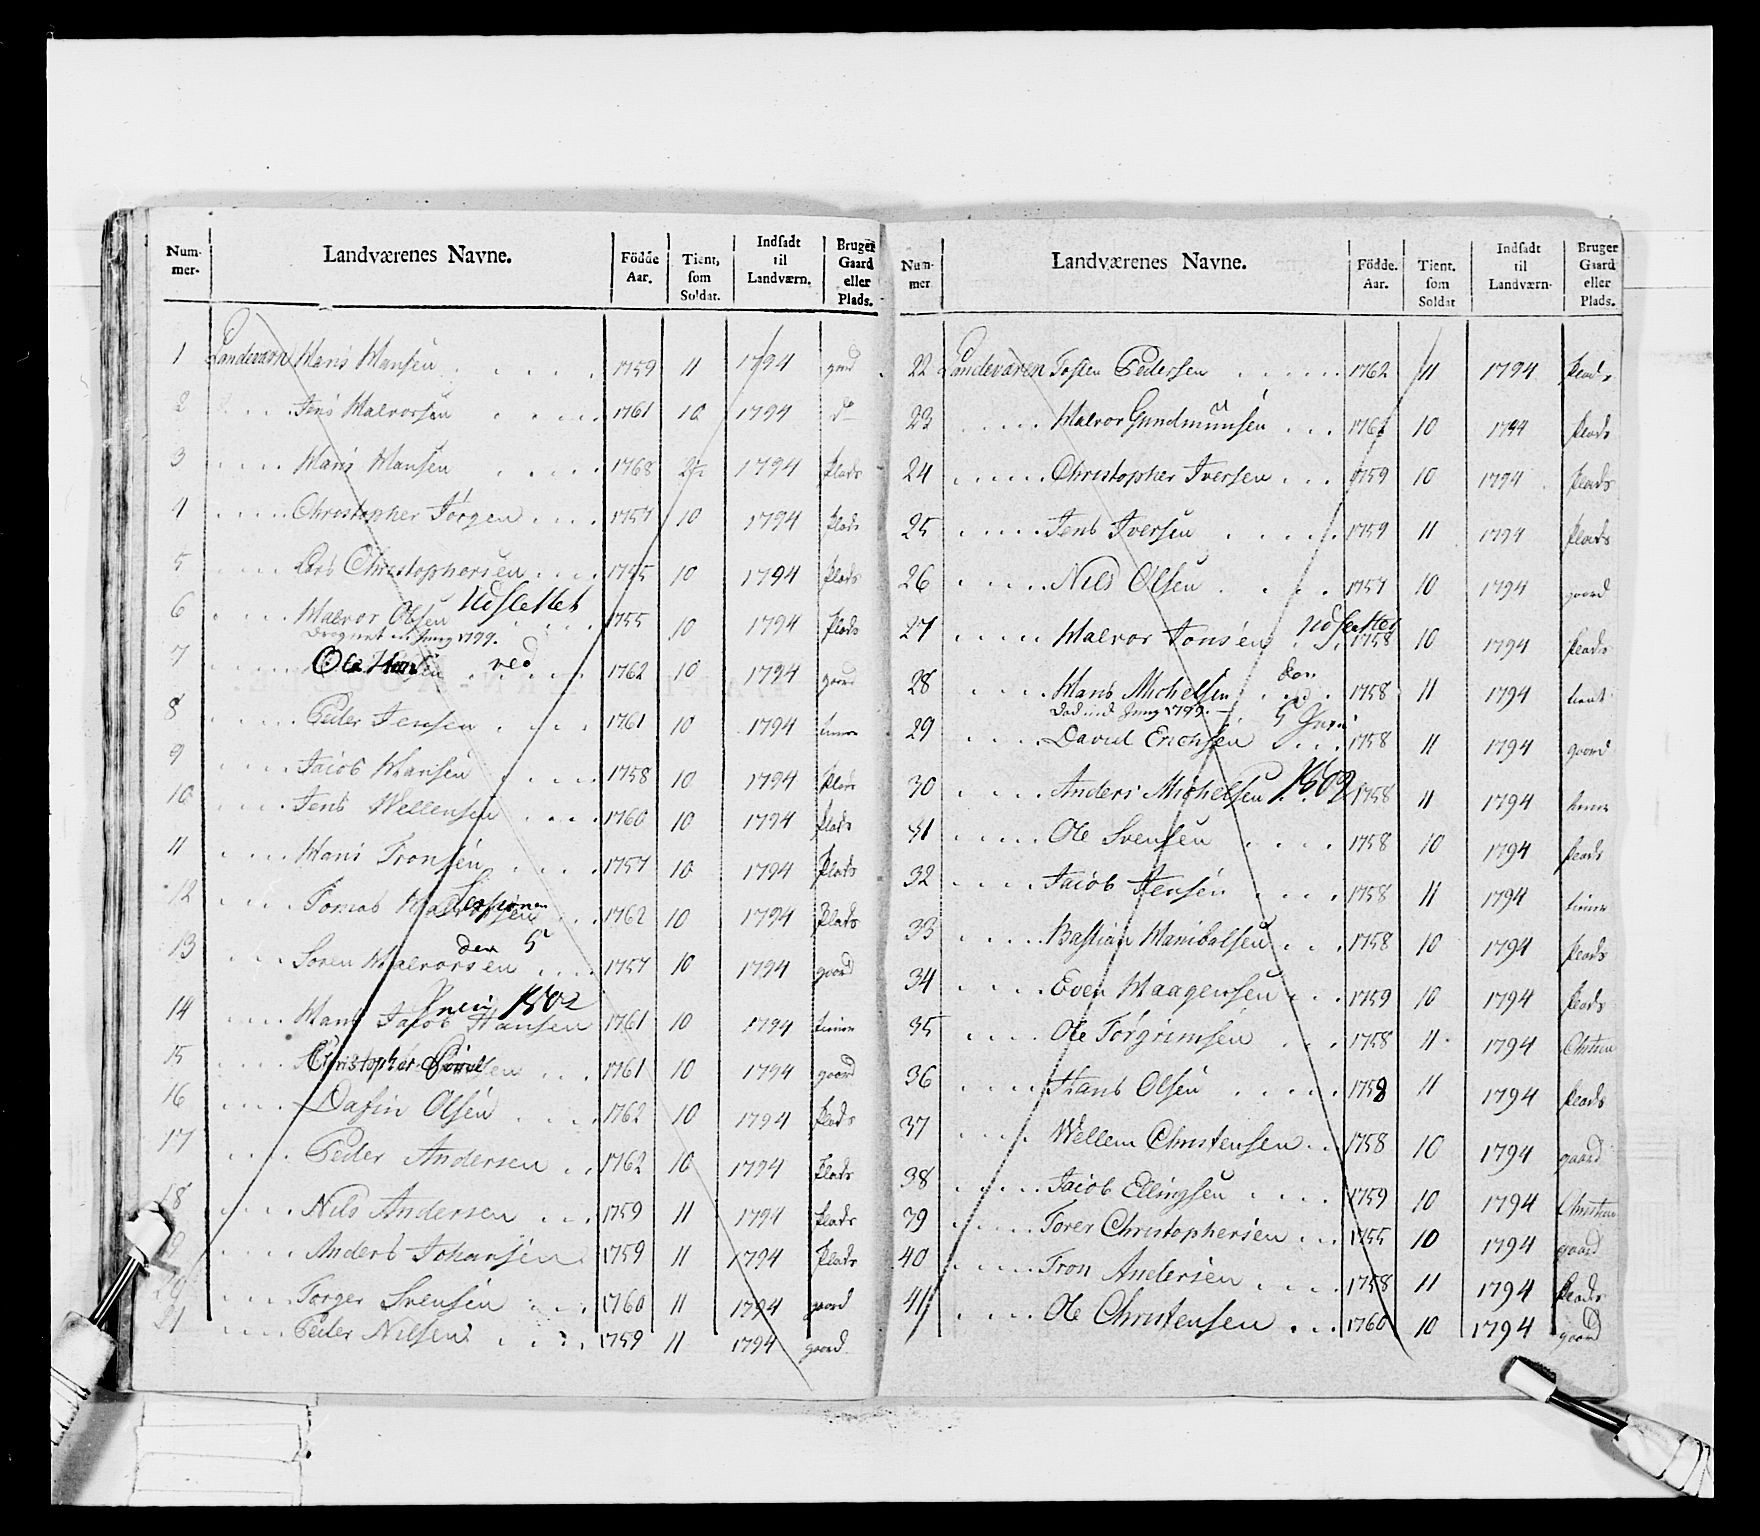 Num-mer. Landværenes Navne. Födde Aar. Tient, som Soldat. Indsadt til Landværn. Bruger Gaard eller Plads.
1 Landevärn Hans Hansen . . . . . 1759 11 1794 gaard
2 . . . . Jens Halvorsen . . . . 1761 10 1794 do
3 . . . . Hans Hansen . . . . . 1768 1794 Plads
4 . . . . Christopher Jörgen . . . . 1757 10 1794 Plads
5 . . . . Lars Christophersen . . . . 1755 10 1794 Plads
6 . . . . Halvor Olsen Udslettet . . . 1755 10 1794 Plads
Juny 1799.
7 . . . . Ole Hansen ved . . . . 1762 10 1794 gaard
8 . . . . Peder Jensen . . . . 1761 10 1794 tienner
9 . . . . Jacob Hansen . . . . . 1758 10 1794 Plads
10 . . . . Jens Wellensen . . . . 1760 10 1794 Plads
11 . . . . Hans Tronsen . . . . 1757 10 1794 Plads
Sessionen
12 . . . . Tomas . . . 1762 10 1794 Plads
den 5
13 . . . Sören Halvorsen . . . . 1757 10 1794 gaard
Juni 1802
14 . . . . Hans Jacob Hansen 1761 10 1794 tienner
15 . . . . Christopher . . . 1761 10 1794 gaard
16 . . . . Dafin Olsen . . . . 1762 10 1794 Plads
17 . . . . Peder Andersen . . 1762 10 1794 Plads
18 . . . . Nils Andersen . . . 1759 11 1794 Plads
. . . . Anders Johansen 1759 11 1794 Plads
20 . . . . Torger Svensen . . . 1760 11 1794 gaard
21 . . . . Peder Nilsen . . . . 1759 11 1794 gaard
Num-mer Landværenes Navne. Födde. Aar. Tient. som Soldat Indsadt til Landværn. Bruger Gaard eller Plads.
22 Landevären Tosten Pedersen . . . . . . 1762 11 1794 Plads
23 . . . . . Halvor Gundmunsen . . . 1761 10 1794 Plads
24 . . . . . Christopher Iversen . . . 1759 10 1794 Plads
25 . . . . . Jens Iversen . . . . . 1759 11 1794 Plads
26 . . . . Nils Olsen . . . . 1757 10 1794 gaard
27 . . . . . Halvor Jonsen Udslettet . . 1758 10 1794 Plads
den
28 . . . . Hans Michelsen . . . . 1758 11 1794 tient
Juny 1799.
5 Juni
29 . . . . David Erichsen . . . . 1758 11 1794 gaard
30 . . . . . Anders Michelsen 1802 1758 11 1794 tienner
31 . . . . . Ole Svensen . . . . 1758 10 1794 Plads
32 . . . . Jacob Jensen . . . . 1758 11 1794 tienner
33 . . . . . Bastian Hanibalsen . . . 1758 10 1794 Plads
34 . . . . Even Haagensen . . . 1759 10 1794 Plads
35 . . . . Ole Torgrimsen . . . 1758 11 1794
36 . . . . Hans Olsen . . . . . 1758 11 1794 Plads
37 . . . . Wellem Christensen . . 1758 10 1794 gaard
38 . . . . . Jacob Ellingsen . . . . 1759 10 1794
39 . . . . . Torer Christophersen . . . 1755 10 1794 gaard
40 . . . . . Tron Andersen . . . . 1758 11 1794 Plads
41 . . . . Ole Christensen . . . 1760 10 1794 gaard